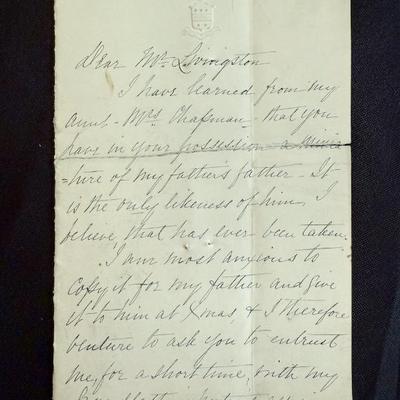 Dear Mr. Livingston
I have learned from my
aunt - Mrs. Chapman - that you
have in your possession a minia
=ture of my father's father - It
is the only likeness of him, I
believe that has ever been taken.
I am most anxious to
Copy it for my father and give
it to him at Xmas, & I therefore
venture to ask you to entrust
me, for a short time, with my